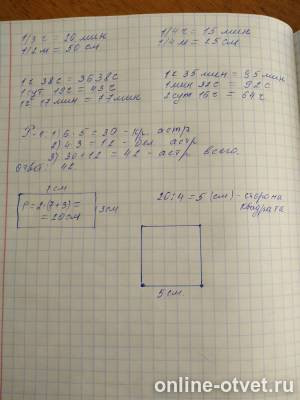 1/3 ч = 20 мин
1/4 ч = 15 мин
1/2 м = 50 см
1/4 м = 25 см
1 ч 38 с = 3638 с
1 ч 35 мин = 95 мин
1 сут 19 ч = 43 ч
1 мин 32 с = 92 с
1 ч 17 мин = 77 мин
2 сут 16 ч = 64 ч
Р-1. 1) 6·5 = 30 - кр. астр
2) 4·3 = 12 - бел. астр
3) 30+12 = 42 - астр. всего.
Ответ: 42
7 см
P = 2·(7+3) =
= 20 см
3 см
20:4 = 5 (см) - сторона
квадрата
5 см.
online-otvet.ru